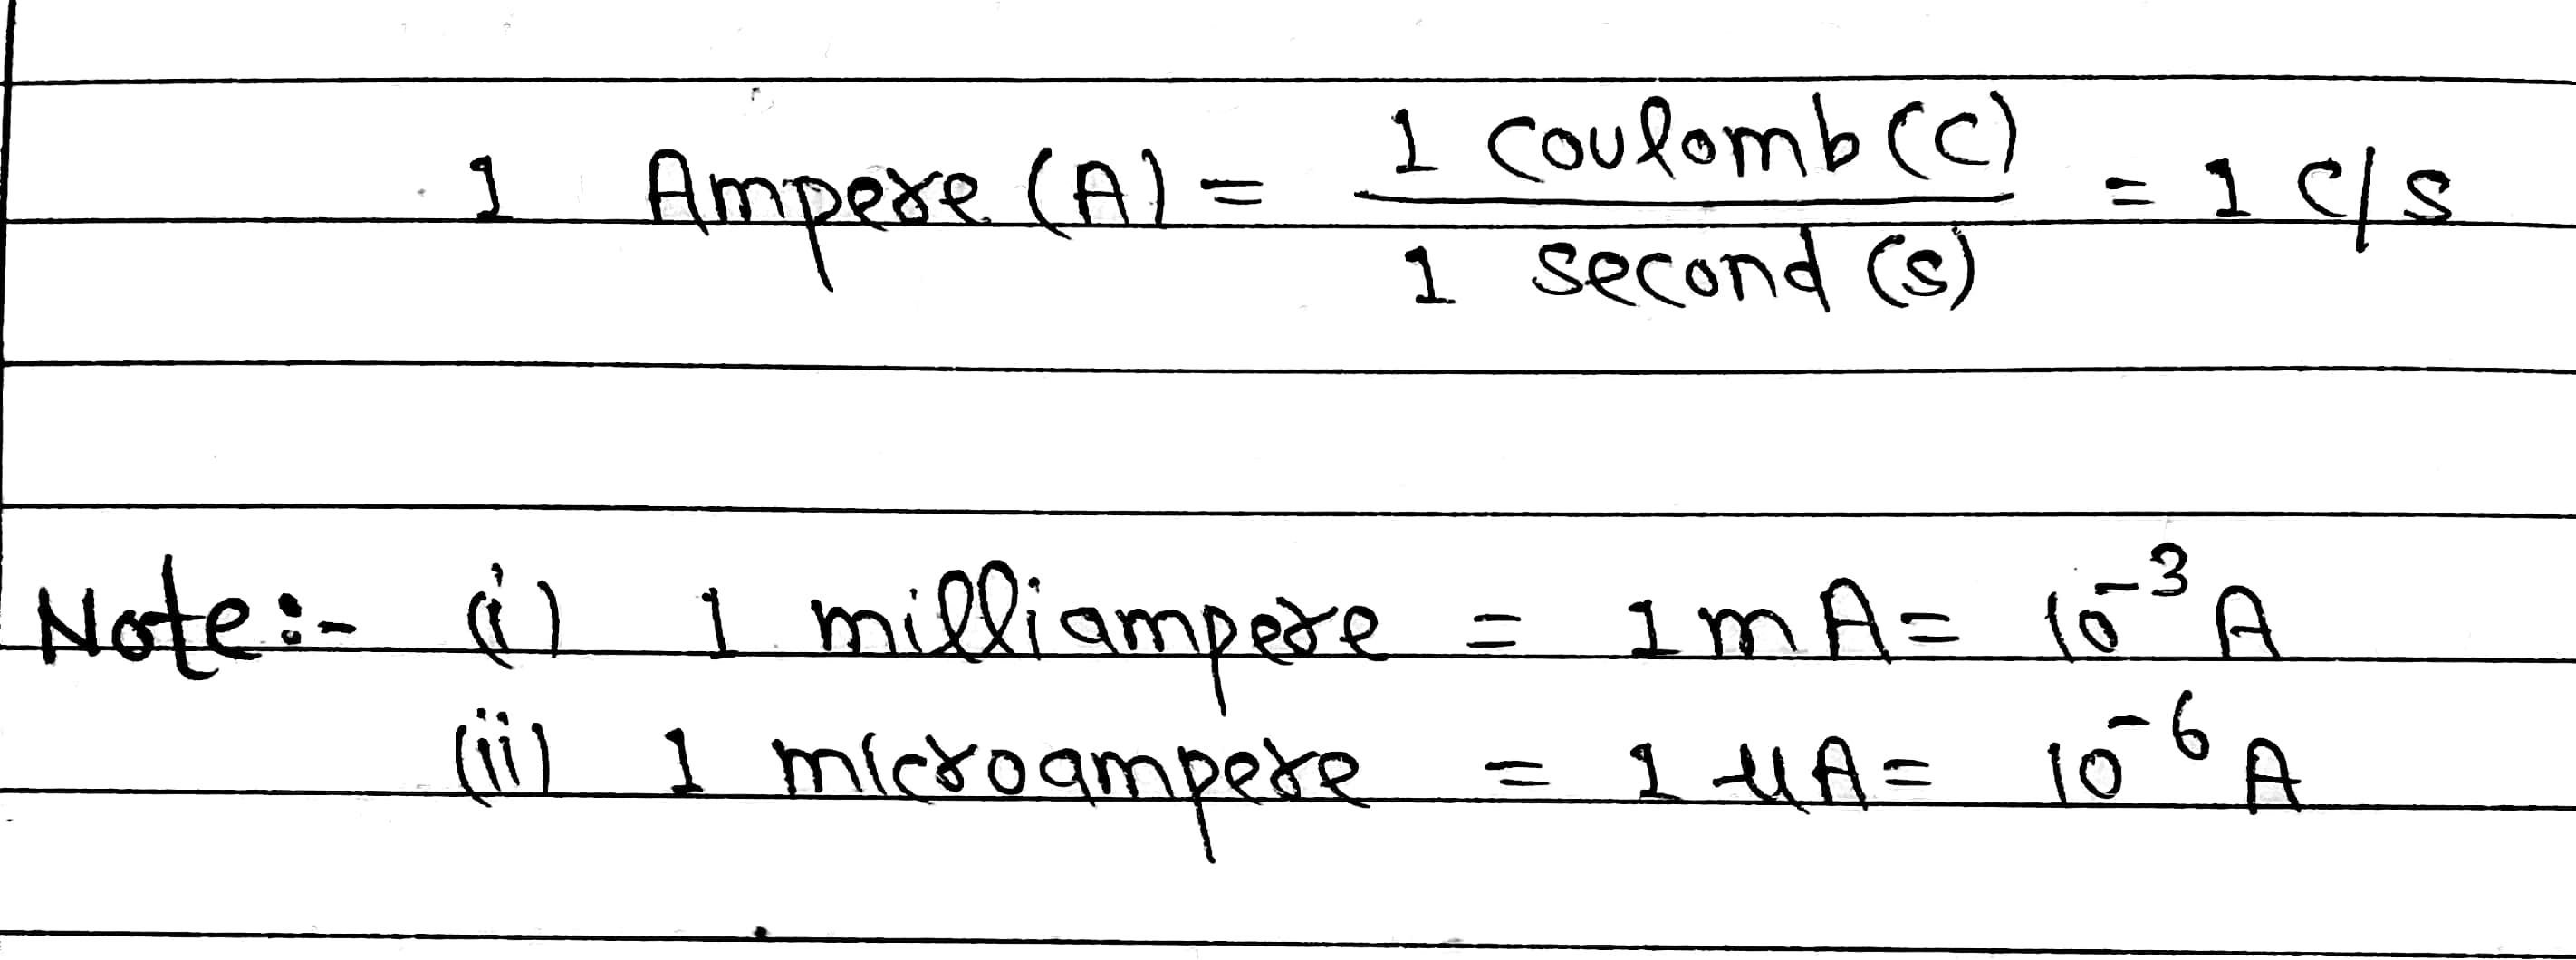 1 Ampere (A) = 1 Coulomb (C) / 1 second (s) = 1 C/s
Note:- (i) 1 milliampere = 1 mA = 10⁻³ A
(ii) 1 microampere = 1 μA = 10⁻⁶ A